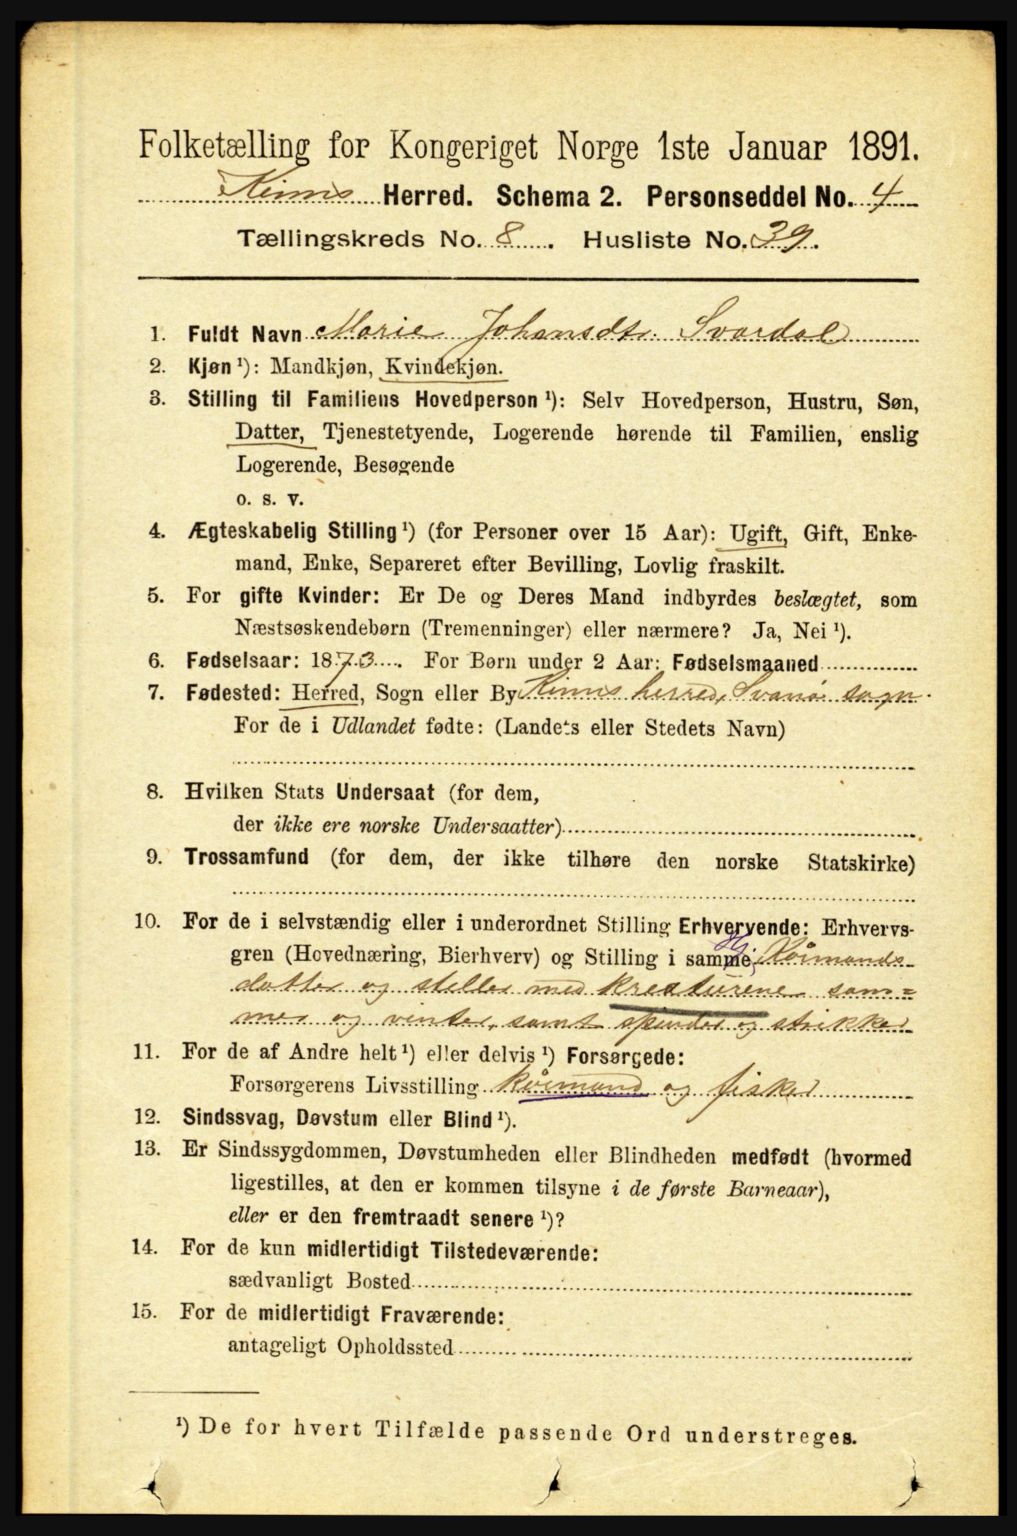 Folketælling for Kongeriget Norge 1ste Januar 1891.
Kinns Herred. Schema 2. Personseddel No. 4
Tællingskreds No. 8. Husliste No. 39.
1. Fuldt Navn Marie Johansdtr. Svardal
2. Kjøn ¹): Mandkjøn, Kvindekjøn.
3. Stilling til Familiens Hovedperson ¹): Selv Hovedperson, Hustru, Søn,
Datter, Tjenestetyende, Logerende hørende til Familien, enslig
Logerende, Besøgende
o. s. v.
4. Ægteskabelig Stilling ¹) (for Personer over 15 Aar): Ugift, Gift, Enke-
mand, Enke, Separeret efter Bevilling, Lovlig fraskilt.
5. For gifte Kvinder: Er De og Deres Mand indbyrdes beslægtet, som
Næstsøskendebørn (Tremenninger) eller nærmere? Ja, Nei ¹).
6. Fødselsaar: 1873. For Børn under 2 Aar: Fødselsmaaned
7. Fødested: Herred, Sogn eller By Kinns herred, Svanø sogn.
For de i Udlandet fødte: (Landets eller Stedets Navn)
8. Hvilken Stats Undersaat (for dem,
der ikke ere norske Undersaatter)
9. Trossamfund (for dem, der ikke tilhøre den norske Statskirke)
10. For de i selvstændig eller i underordnet Stilling Erhvervende: Erhvervs-
gren (Hovednæring, Bierhverv) og Stilling i samme: Kårmands-
datter og steller med kreaturene som=
mer og vinter, samt spinder og strikker
11. For de af Andre helt ¹) eller delvis ¹) Forsørgede:
Forsørgerens Livsstilling kårmand og fisker
12. Sindssvag, Døvstum eller Blind ¹).
13. Er Sindssygdommen, Døvstumheden eller Blindheden medfødt (hvormed
ligestilles, at den er kommen tilsyne i de første Barneaar),
eller er den fremtraadt senere ¹)?
14. For de kun midlertidigt Tilstedeværende:
sædvanligt Bosted
15. For de midlertidigt Fraværende:
antageligt Opholdssted
¹) De for hvert Tilfælde passende Ord understreges.